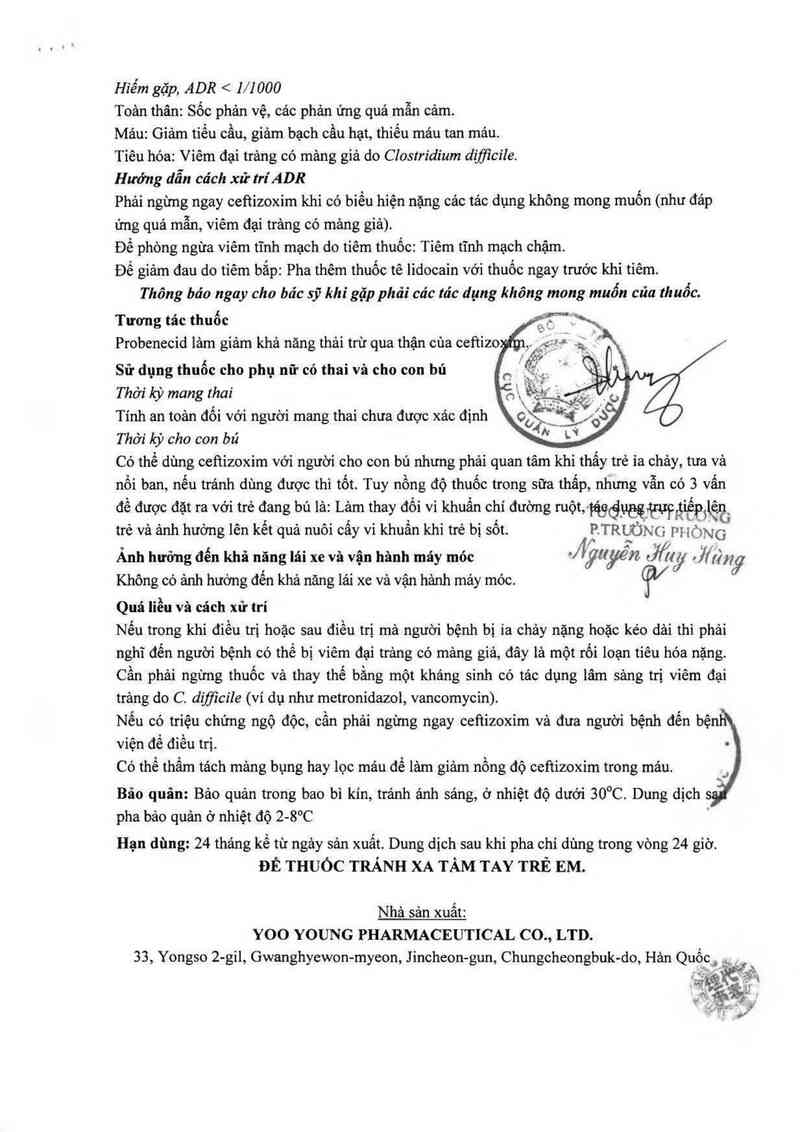 Hiếm gặp, ADR < 1/1000
Toàn thân: Sốc phản vệ, các phản ứng quá mẫn cảm.
Máu: Giảm tiểu cầu, giảm bạch cầu hạt, thiếu máu tan máu.
Tiêu hóa: Viêm đại tràng có màng giả do Clostridium difficile.
Hướng dẫn cách xử trí ADR
Phải ngừng ngay ceftizoxim khi có biểu hiện nặng các tác dụng không mong muốn (như đáp
ứng quá mẫn, viêm đại tràng có màng giả).
Để phòng ngừa viêm tĩnh mạch do tiêm thuốc: Tiêm tĩnh mạch chậm.
Để giảm đau do tiêm bắp: Pha thêm thuốc tê lidocain với thuốc ngay trước khi tiêm.
Thông báo ngay cho bác sỹ khi gặp phải các tác dụng không mong muốn của thuốc.
Tương tác thuốc
Probenecid làm giảm khả năng thải trừ qua thận của ceftizoxim.
BỘ Y TẾ
CỤC QUẢN LÝ DƯỢC
Sử dụng thuốc cho phụ nữ có thai và cho con bú
Thời kỳ mang thai
Tính an toàn đối với người mang thai chưa được xác định
Thời kỳ cho con bú
Có thể dùng ceftizoxim với người cho con bú nhưng phải quan tâm khi thấy trẻ ỉa chảy, tưa và
nổi ban, nếu tránh dùng được thì tốt. Tuy nồng độ thuốc trong sữa thấp, nhưng vẫn có 3 vấn
đề được đặt ra với trẻ đang bú là: Làm thay đổi vi khuẩn chí đường ruột, tác dụng trực tiếp lên
TUQ. CỤC TRƯỞNG
trẻ và ảnh hưởng lên kết quả nuôi cấy vi khuẩn khi trẻ bị sốt.
P.TRƯỞNG PHÒNG
Nguyễn Huy Hùng
Ảnh hưởng đến khả năng lái xe và vận hành máy móc
Không có ảnh hưởng đến khả năng lái xe và vận hành máy móc.
Quá liều và cách xử trí
Nếu trong khi điều trị hoặc sau điều trị mà người bệnh bị ỉa chảy nặng hoặc kéo dài thì phải
nghĩ đến người bệnh có thể bị viêm đại tràng có màng giả, đây là một rối loạn tiêu hóa nặng.
Cần phải ngừng thuốc và thay thế bằng một kháng sinh có tác dụng lâm sàng trị viêm đại
tràng do C. difficile (ví dụ như metronidazol, vancomycin).
Nếu có triệu chứng ngộ độc, cần phải ngừng ngay ceftizoxim và đưa người bệnh đến bệnh
viện để điều trị.
Có thể thẩm tách màng bụng hay lọc máu để làm giảm nồng độ ceftizoxim trong máu.
Bảo quản: Bảo quản trong bao bì kín, tránh ánh sáng, ở nhiệt độ dưới 30°C. Dung dịch sau
pha bảo quản ở nhiệt độ 2-8°C
Hạn dùng: 24 tháng kể từ ngày sản xuất. Dung dịch sau khi pha chỉ dùng trong vòng 24 giờ.
ĐỂ THUỐC TRÁNH XA TẦM TAY TRẺ EM.
Nhà sản xuất:
YOO YOUNG PHARMACEUTICAL CO., LTD.
33, Yongso 2-gil, Gwanghyewon-myeon, Jincheon-gun, Chungcheongbuk-do, Hàn Quốc